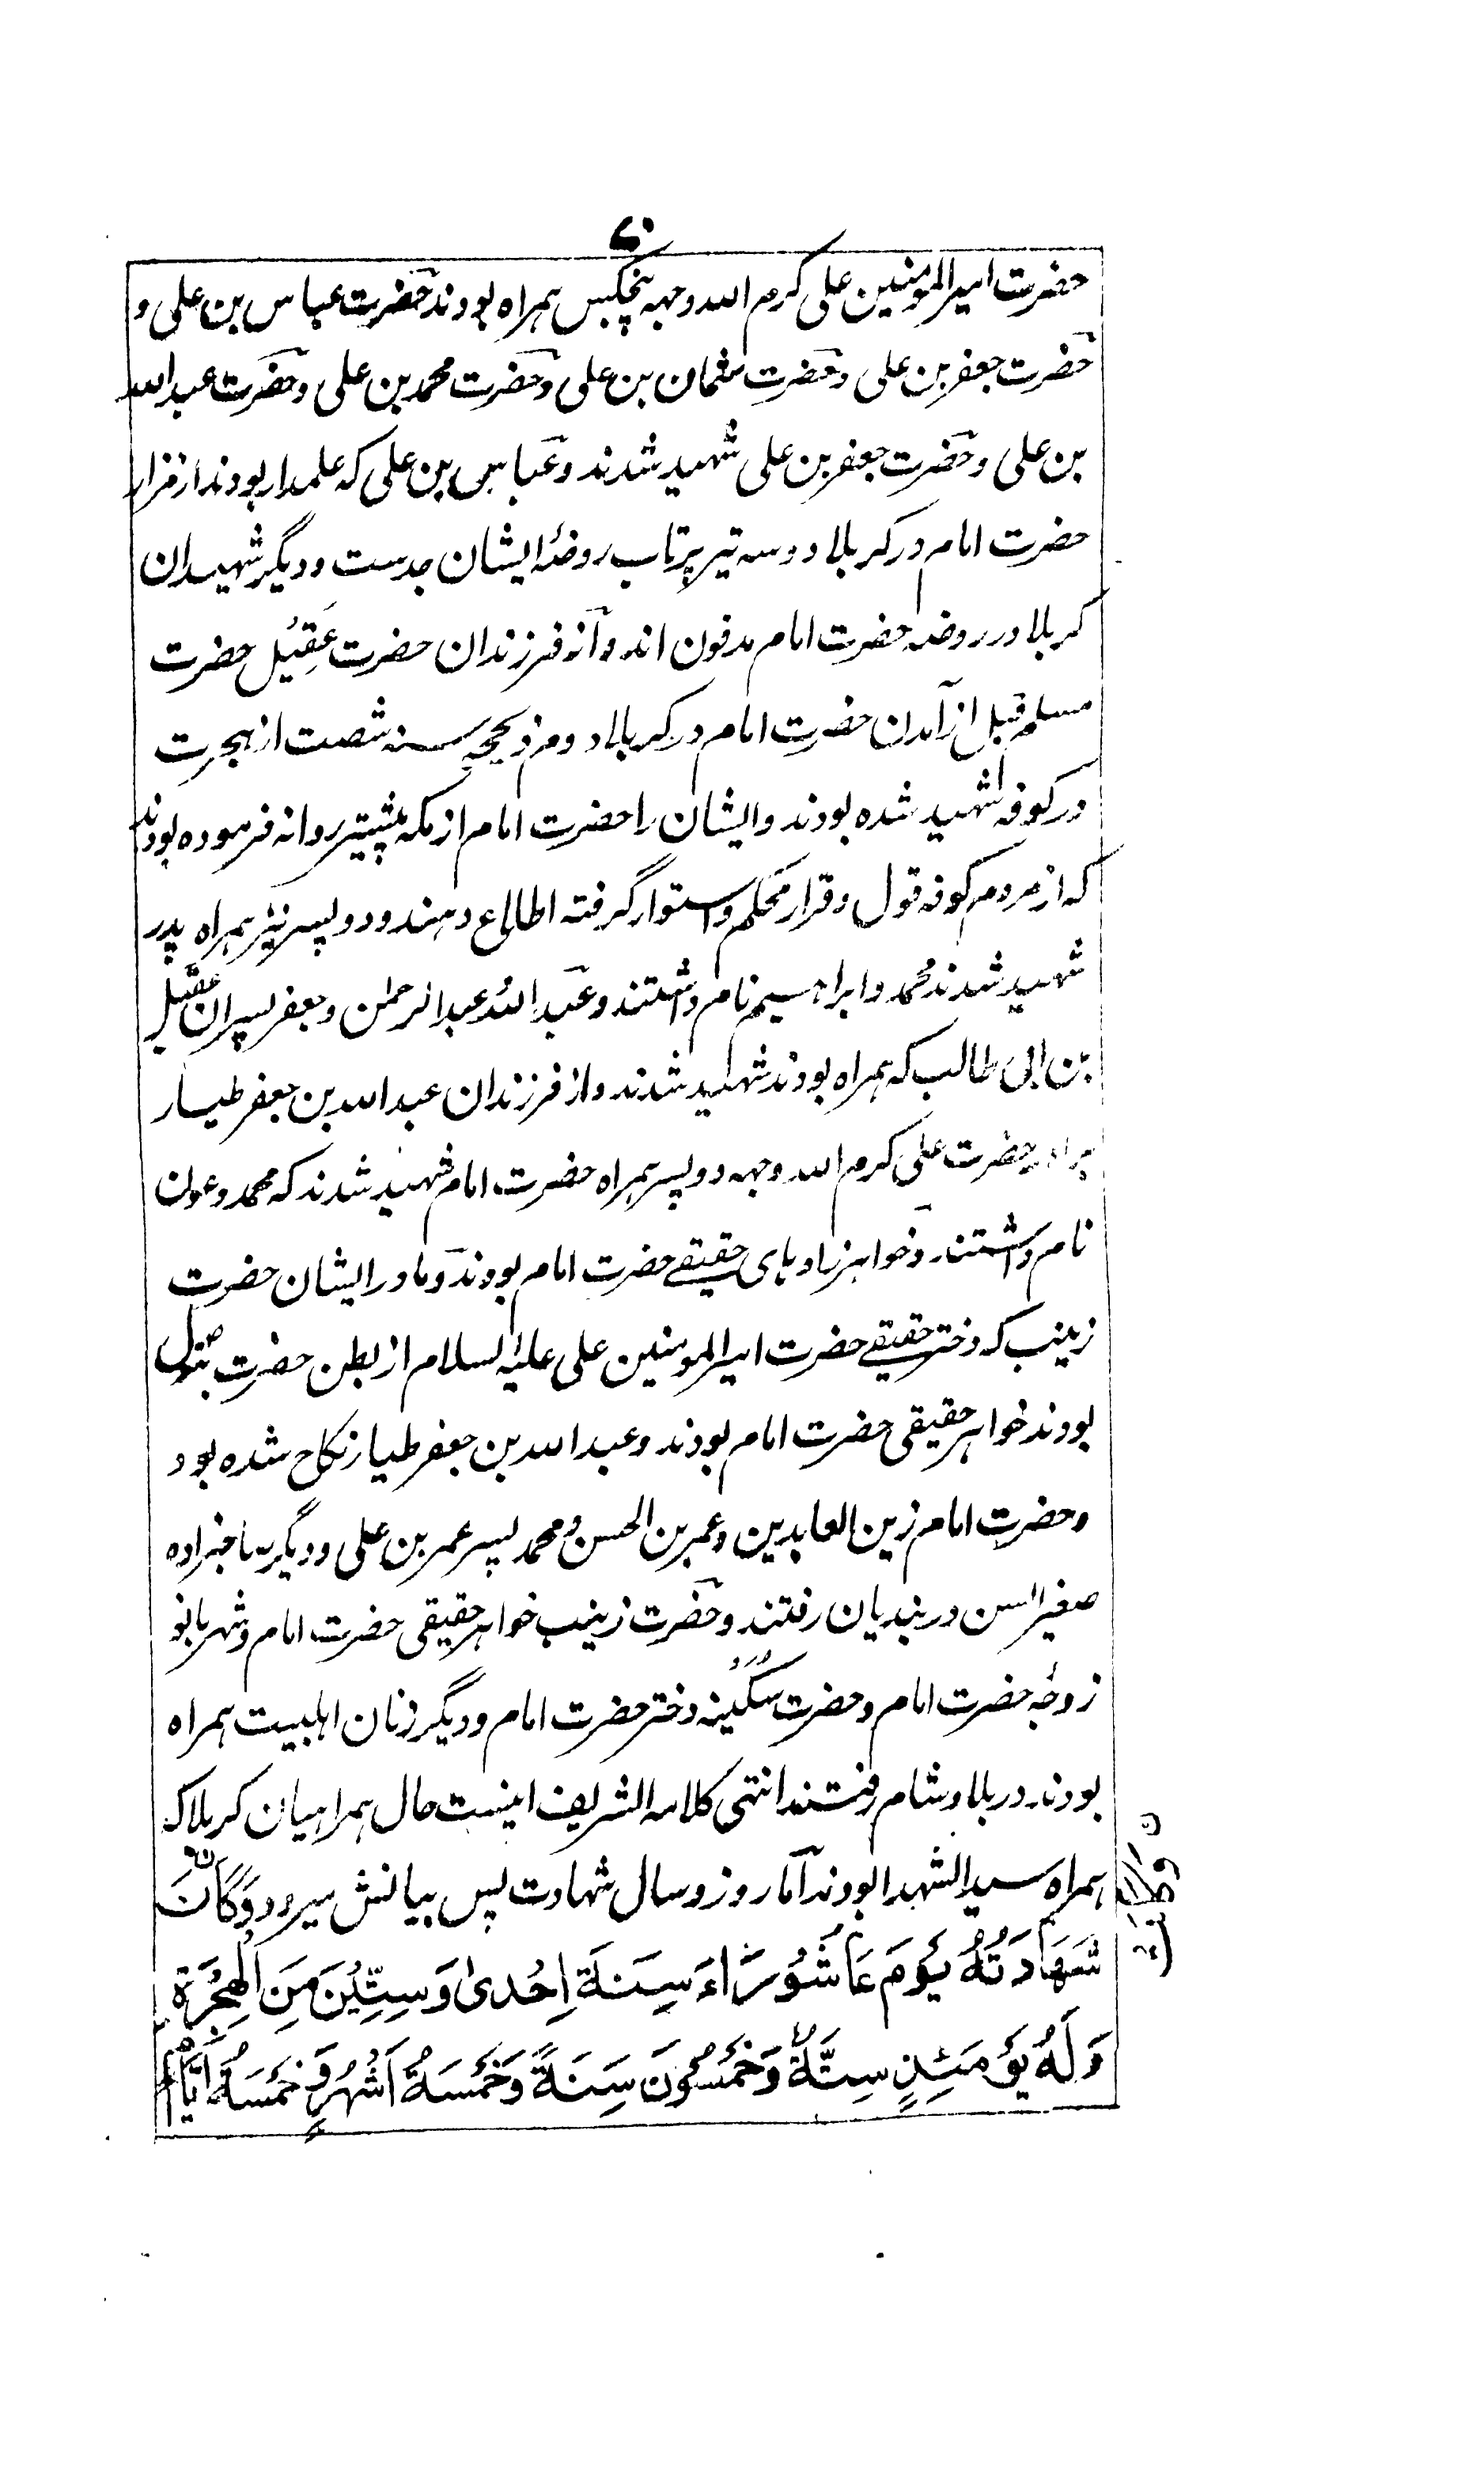 حضرت امیرالمومنین علی کرم الله وجهه پنجکس همراه بودند حضرت عباس بن علی و
حضرت جعفر بن علی و حضرت عثمان بن علی و حضرت محمد بن علی و حضرت عبدالله
بن علی و حضرت جعفر بن علی شهید شدند و عباس بن علی که علمدار بودند از مزار
حضرت امام در کربلا دو سه تیر پرتاب روضهٔ ایشان جدست و دیگر شهیدان
کربلا در روضه حضرت امام مدفون اند و از فرزندان حضرت عَقِیْل حضرت
مسلم قبل از آمدن حضرت امام در کربلا دوم ذیحجه سنه شصت از هجرت
در کوفه شهید شده بودند و ایشان را حضرت امام از مکه پیشتر روانه فرموده بودند
که از مردم کوفه قول و قرار محکم و استوار گرفته اطلاع دهند و دو پسر نیز همراه پدر
شهید شدند محمد و ابراهیم نام داشتند و عبدالله عبدالرحمن و جعفر پسران عقیل
بن ابی طالب که همراه بودند شهید شدند و از فرزندان عبدالله بن جعفر طیار
برادر حضرت علی کرم الله وجهه دو پسر همراه حضرت امام شهید شدند که محمد و عون
نام داشتند و خواهرزادهای حقیقے حضرت امام بودند و مادر ایشان حضرت
زینب که دختر حقیقے حضرت امیرالمومنین علی علیه السلام از بطن حضرت بتول
بودند خواهر حقیقی حضرت امام بودند و عبدالله بن جعفر طیار نکاح شده بود
و حضرت امام زین العابدین و عمر بن الحسن و محمد پسر عمر بن علی و دیگر صاحبزاده
صغیر السن در بندیان رفتند و حضرت زینب خواهر حقیقی حضرت امام و شهر بانو
زوجهٔ حضرت امام و حضرت سکینه دختر حضرت امام و دیگر زنان اهلبیت همراه
بودند در بلاد شام رفتند انتهی کلامه الشریف اینست حال همراهیان کربلا که
همراه سید الشهدا بودند اما روز و سال شهادت پس بیانش میرود وَكَانَتْ
شَهَادَتُهُ يَوْمَ عَاشُوْرَاءَ سَنَةَ اِحْدىٰ وَسِتِّيْنَ مِنَ الْهِجْرَةِ
وَلَهُ يَوْمَئِذٍ سِتَّةٌ وَخَمْسُوْنَ سَنَةً وَخَمْسَةُ اَشْهُرٍ وَخَمْسَةُ اَيَّامٍ